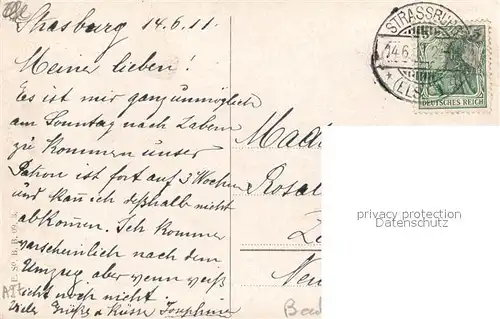 Strasburg 14.6.11.
Meine lieben!
Es ist mir ganz unmöglich
am Sonntag nach Zabern
zu kommen unser
Patron ist fort auf 3 Wochen
und kann ich deßhalb nicht
abkommen. Ich komme
warscheinlich nach dem
Umzug aber wenn weiß
ich noch nicht.
Viele Grüße u Küsse Josephine
STRASSBURG
14.6.11
(ELS
DEUTSCHES REICH
Mada
Rosa
Neu
privacy protection
Datenschutz